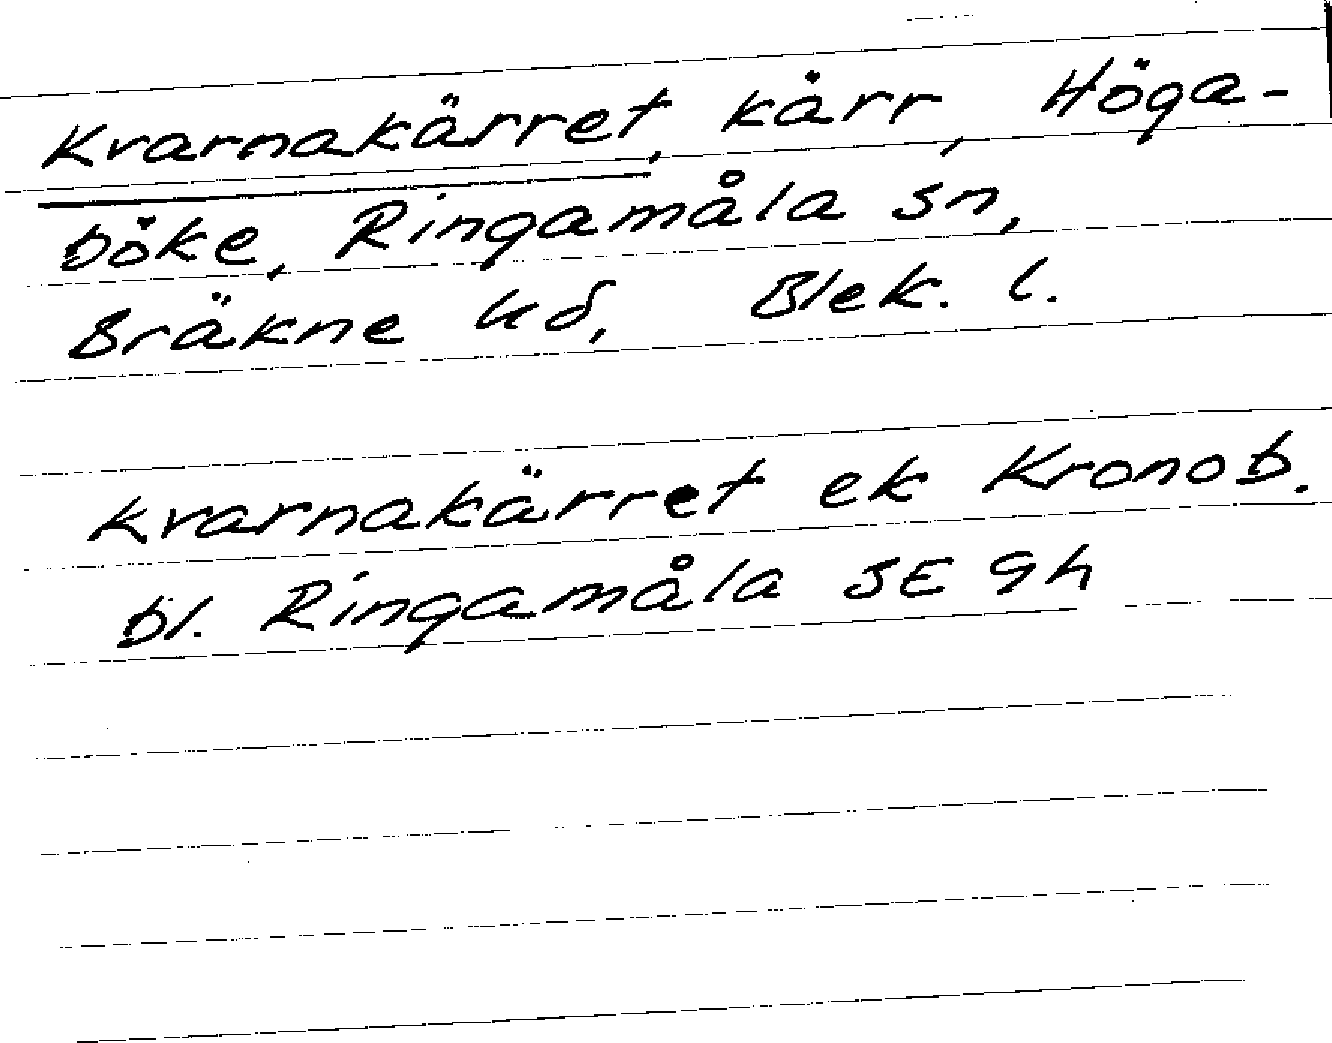 Kvarnakärret, kärr, Höga-
böke, Ringamåla sn,
Bräkne hd, Blek. l.
Kvarnakärret ek Kronob.
bl. Ringamåla SE 9h